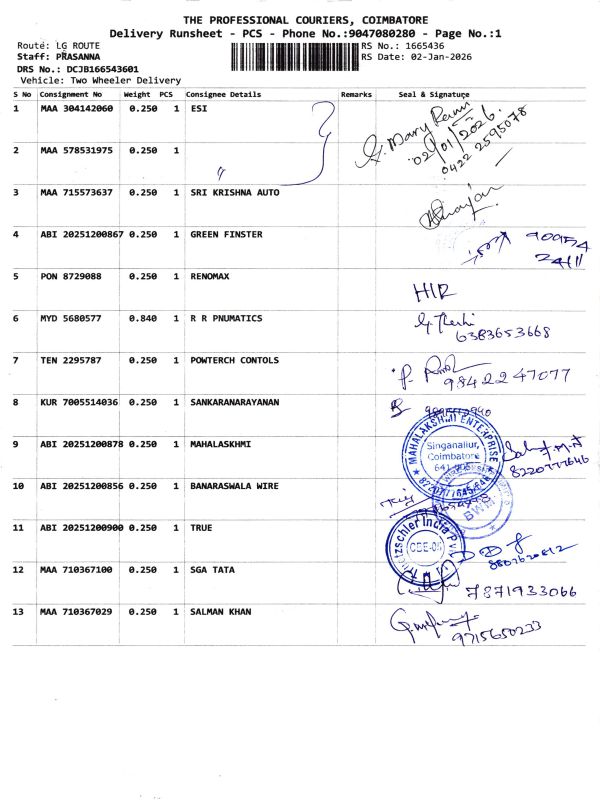 THE PROFESSIONAL COURIERS, COIMBATORE
Delivery Runsheet - PCS - Phone No.:9047080280 - Page No.:1
Route: LG ROUTE
RS No.: 1665436
Staff: PRASANNA
RS Date: 02-Jan-2026
DRS No.: DCJB166543601
Vehicle: Two Wheeler Delivery
S No Consignment No Weight PCS Consignee Details Remarks Seal & Signature
1 MAA 304142060 0.250 1 ESI
G. Mary Rani
02/01/2026.
0422 2595078
2 MAA 578531975 0.250 1 "
3 MAA 715573637 0.250 1 SRI KRISHNA AUTO
4 ABI 20251200867 0.250 1 GREEN FINSTER
90054
2411
5 PON 8729088 0.250 1 RENOMAX
HIR
6 MYD 5680577 0.840 1 R R PNUMATICS
6383653668
7 TEN 2295787 0.250 1 POWTERCH CONTOLS
9842247077
8 KUR 7005514036 0.250 1 SANKARANARAYANAN
MAHALAKSHMI ENTERPRISE
Singanallur,
Coimbatore
9 ABI 20251200878 0.250 1 MAHALASKHMI
8220777646
10 ABI 20251200856 0.250 1 BANARASWALA WIRE
BWM
11 ABI 20251200900 0.250 1 TRUE
India Pvt
12 MAA 710367100 0.250 1 SGA TATA
7871933066
13 MAA 710367029 0.250 1 SALMAN KHAN
9715650233